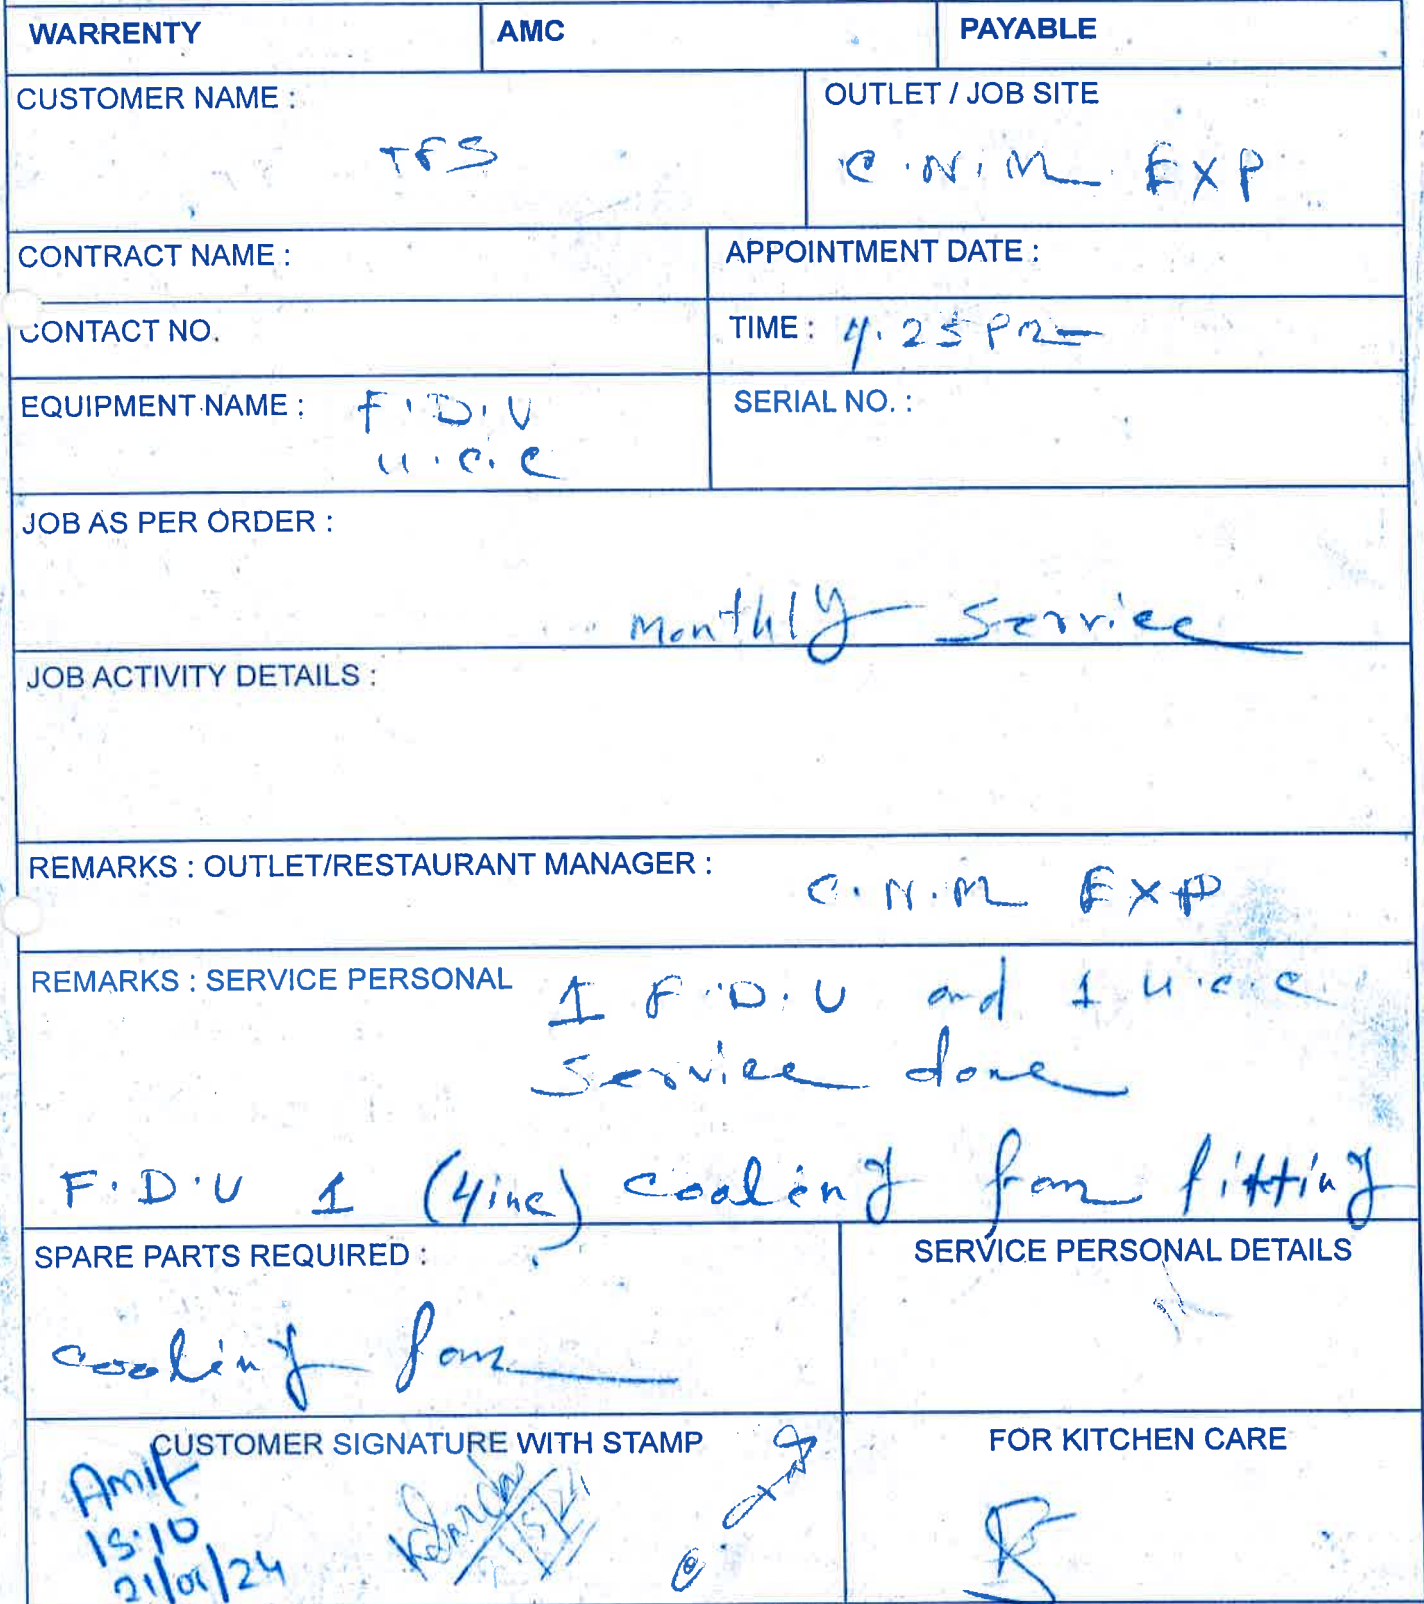 WARRENTY AMC PAYABLE
CUSTOMER NAME : OUTLET / JOB SITE
TFS C.N.M EXP
CONTRACT NAME : APPOINTMENT DATE :
CONTACT NO. TIME : 4.25 PM
EQUIPMENT NAME : F.D.U SERIAL NO. :
U.C.C
JOB AS PER ORDER :
Monthly Service
JOB ACTIVITY DETAILS :
REMARKS : OUTLET/RESTAURANT MANAGER : C.N.M EXP
REMARKS : SERVICE PERSONAL 1 F.D.U and 1 U.C.C.
Service done
F.D.U 1 (4inc) cooling fan fitting
SPARE PARTS REQUIRED : SERVICE PERSONAL DETAILS
cooling fan
CUSTOMER SIGNATURE WITH STAMP FOR KITCHEN CARE
Amit
15:10